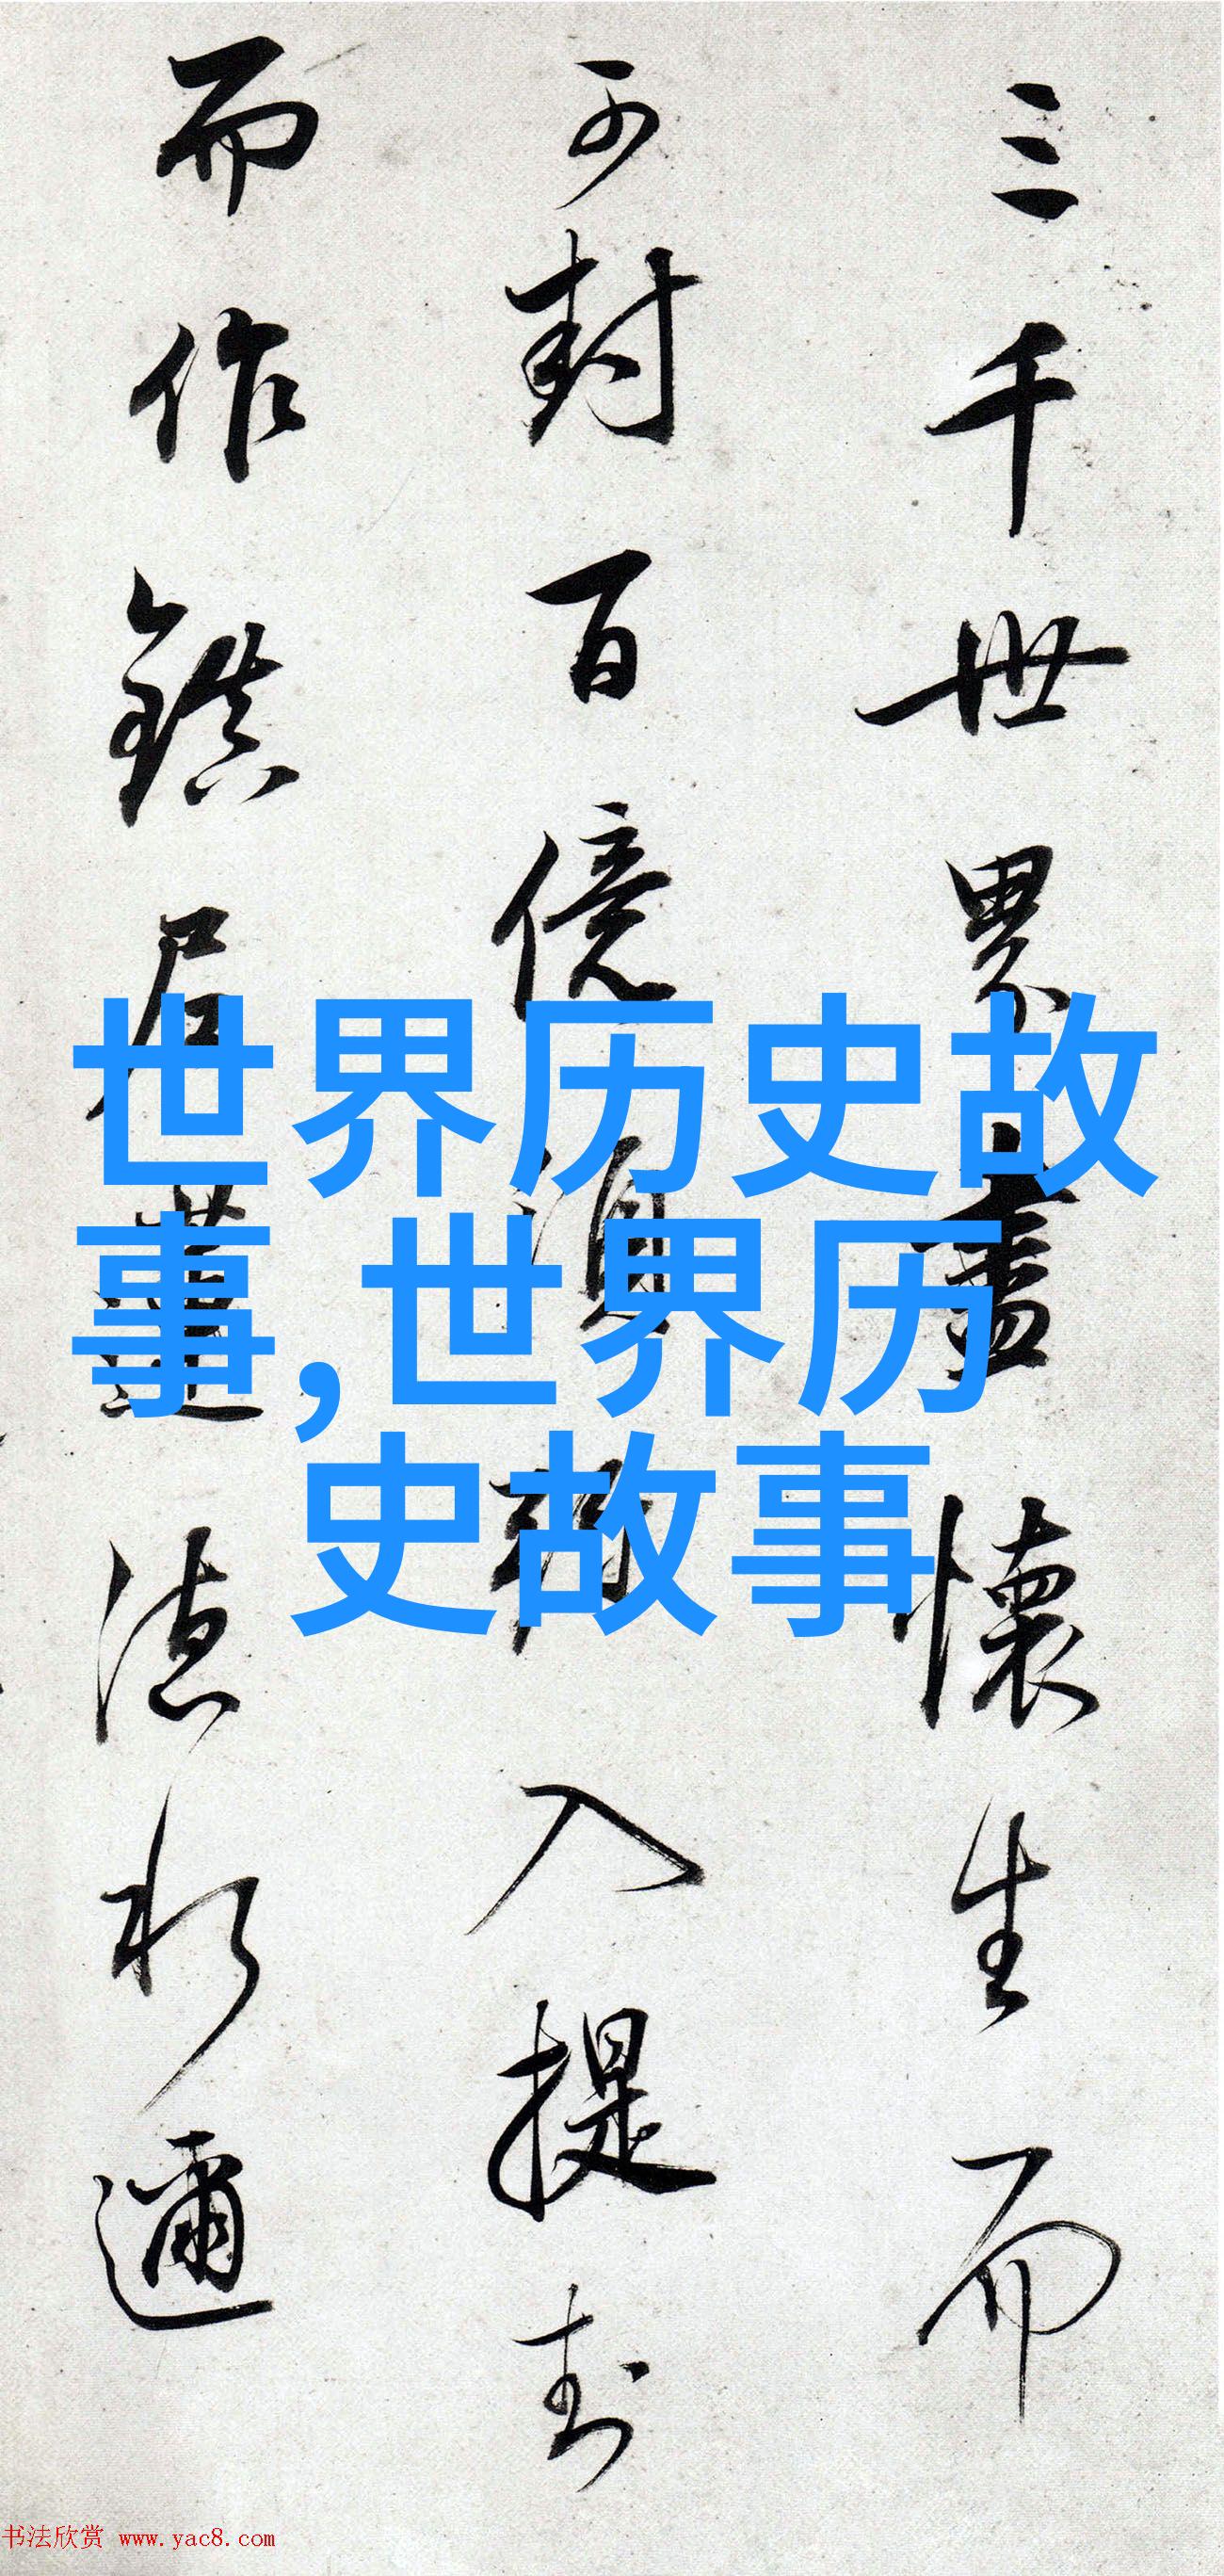 三千世界盡懷生而
可封百億須入提封
而作鎮居德於邇
世界历史故
事,世界历
史故事
书法欣赏 www.yac8.com